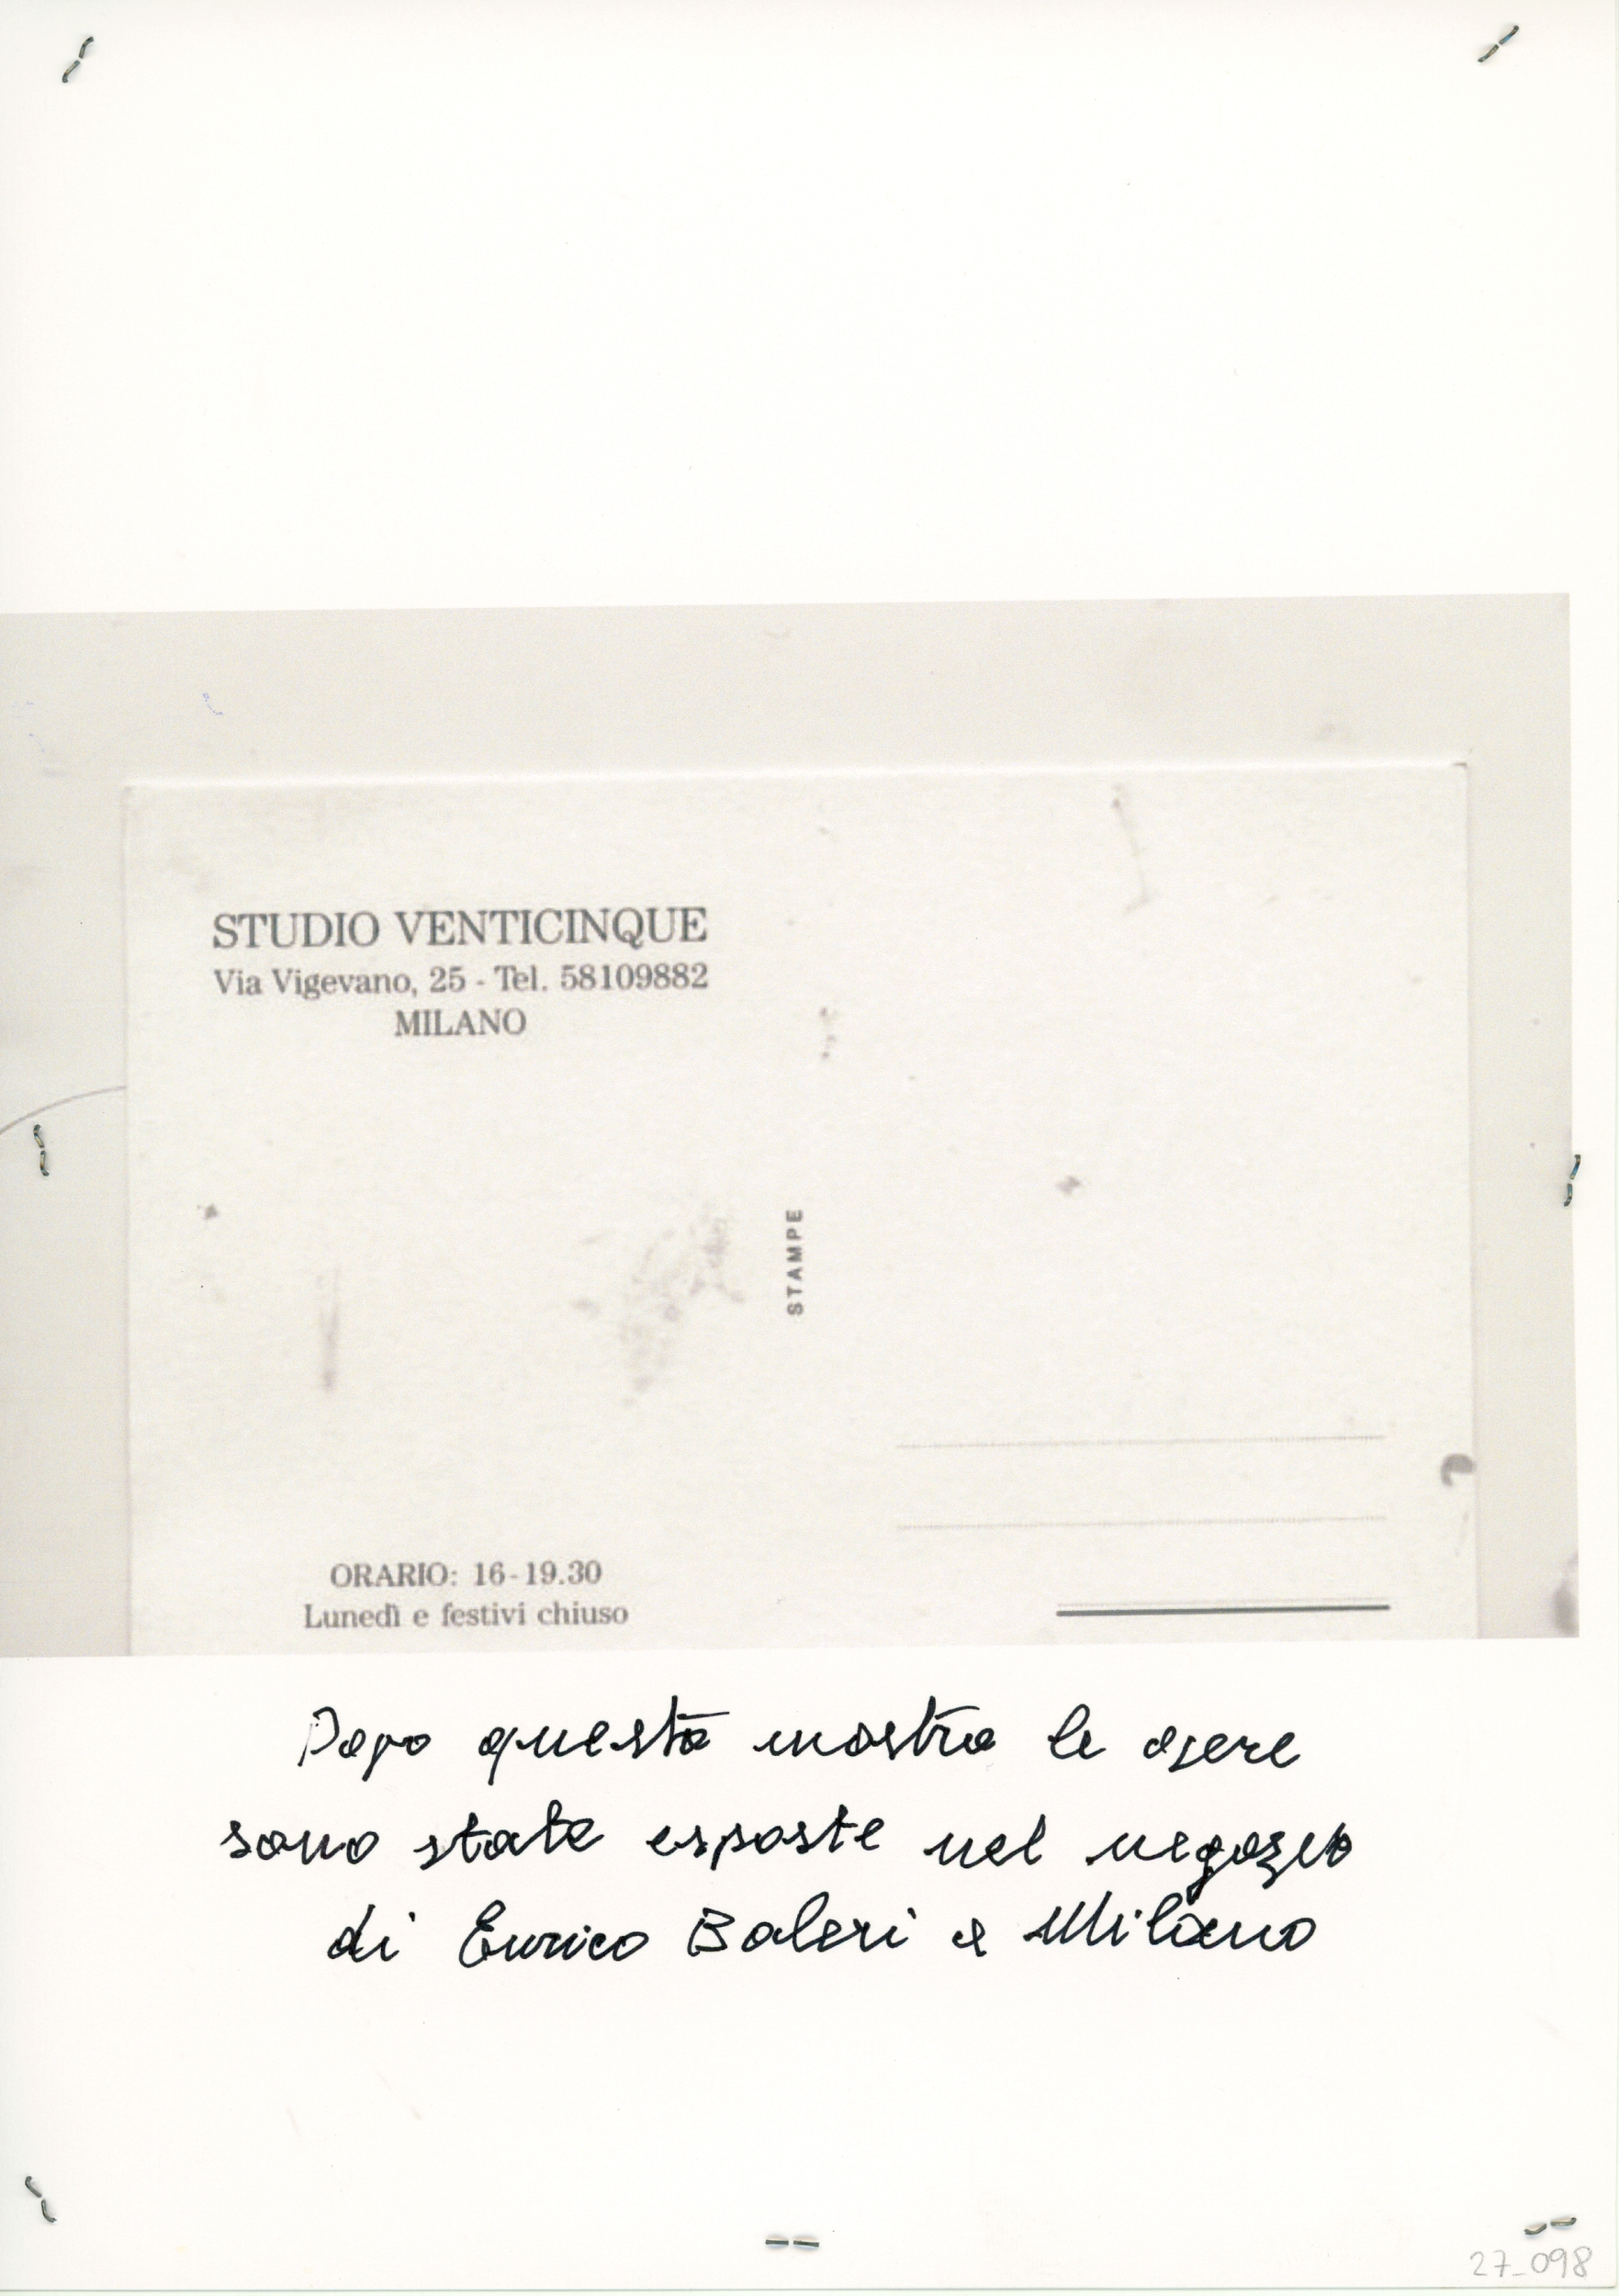 STUDIO VENTICINQUE
Via Vigevano, 25 - Tel. 58109882
MILANO
STAMPE
ORARIO: 16-19.30
Lunedì e festivi chiuso
Dopo questa mostra le opere
sono state esposte nel negozio
di Enrico Baleri a Milano
27_098